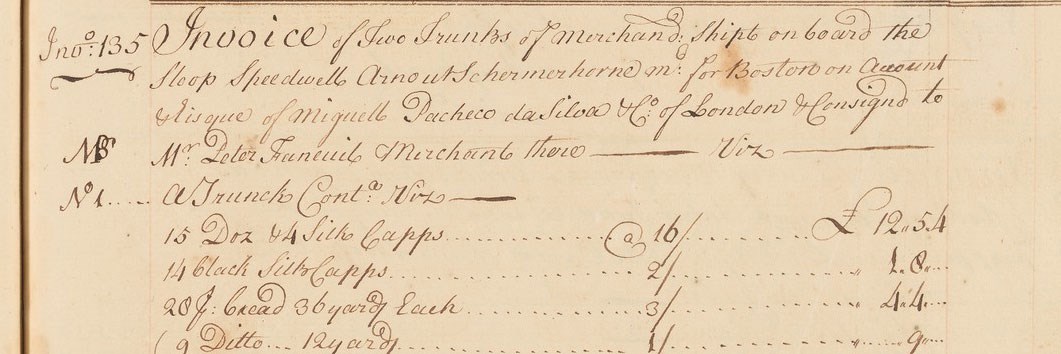 Invo: 135 Invoice of Two Trunks of Merchand: Shipt on board the
Sloop Speedwell Arnout Schermerhorne mr: for Boston on Account
& Risque of Miguell Pacheco da Silva & Co: of London & Consignd to
Mr. Peter Faneuil Merchant there — Viz —
No 1..... A Trunck Conta. Viz —
15 Doz & 4 Silk Capps............ @ 16/........ £ 12..5.4
14 black Silk Capps............ 2/........ " 1..8..
28 ps: bread 36 yards Each............ 3/........ " 4..4..
9 Ditto... 12 yards............ 1/........ " 9..